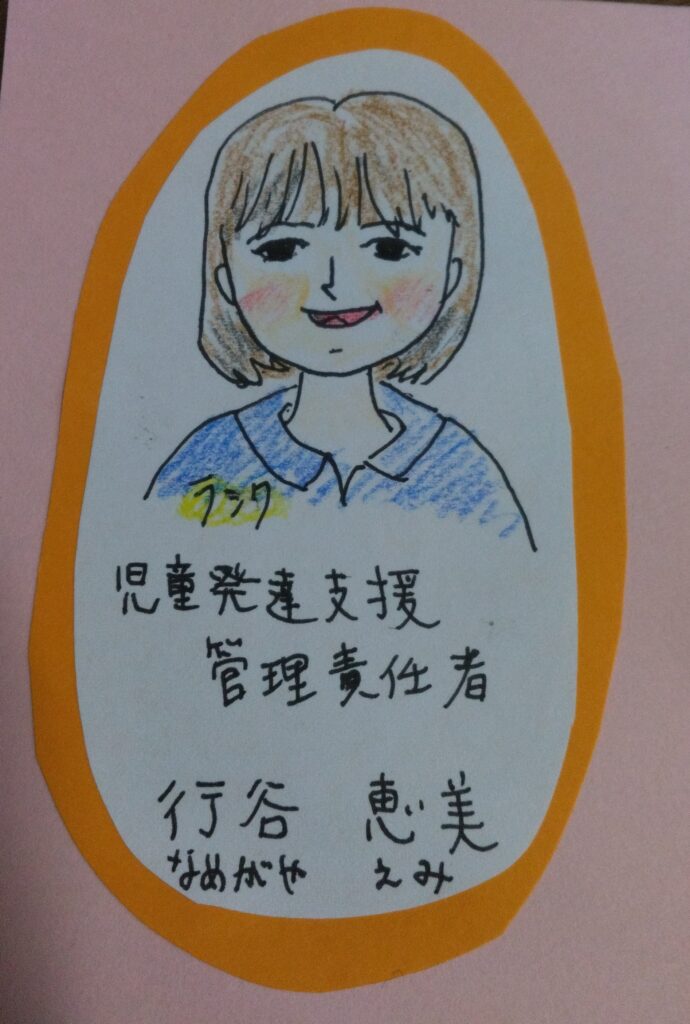 ラシク
児童発達支援
管理責任者
行谷 恵美
なめがや えみ